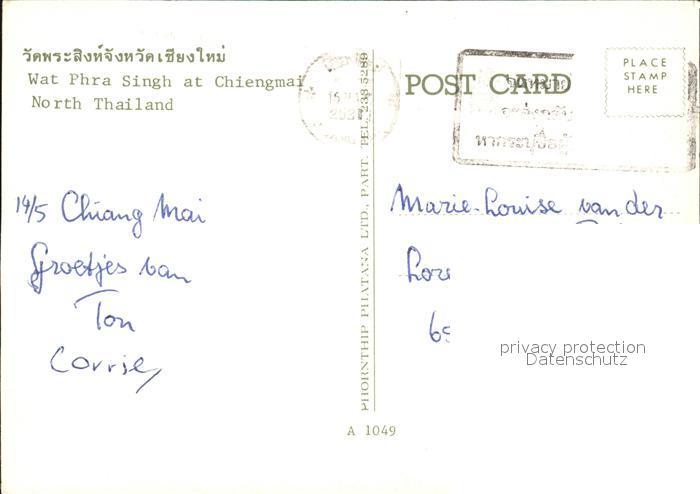 วัดพระสิงห์จังหวัดเชียงใหม่
Wat Phra Singh at Chiengmai
North Thailand
14/5 Chiang Mai
Groetjes van
Ton
Corrie,
PHORNTHIP PHATANA LTD., PART. TEL. 238-5289
A 1049
POST CARD
PLACE
STAMP
HERE
หากระบุชื่อผู้
Marie-Louise van der
privacy protection
Datenschutz